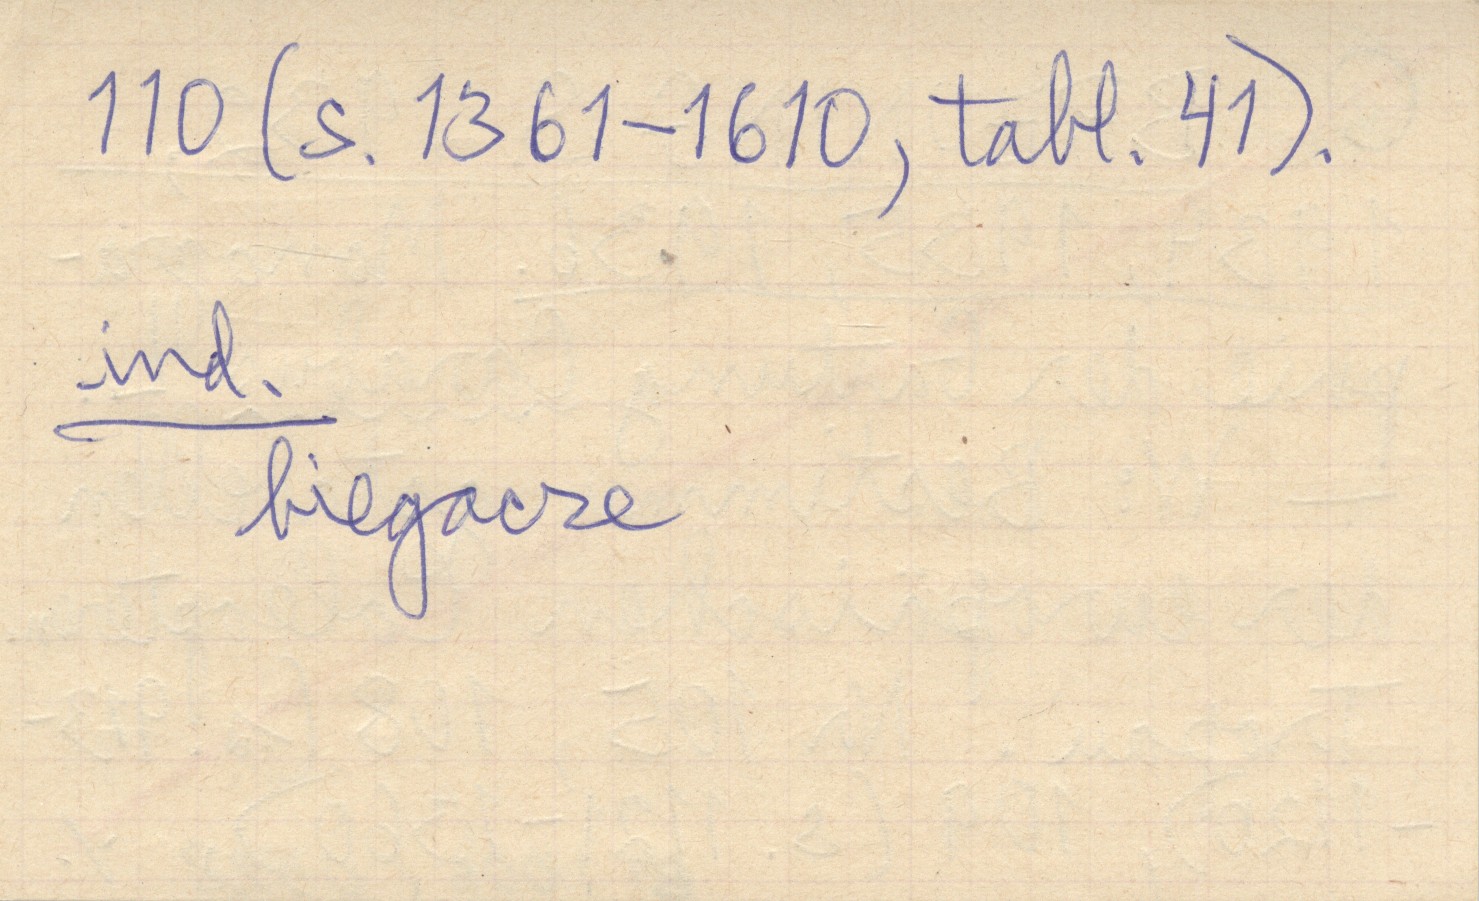 110 (s. 1361-1610, tabl. 41).
ind.
biegacze